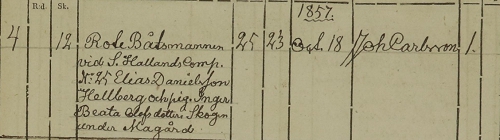 1857.
Rd. Sk.
4 12 Rote Båtsmannen 25 23 Oct. 18 Joh Carlsson 1.
vid S. Hallands Comp.
No 25 Elias Danielsson
Hellberg och pig. Inger
Beata Olofsdotter Skogen
under Magård